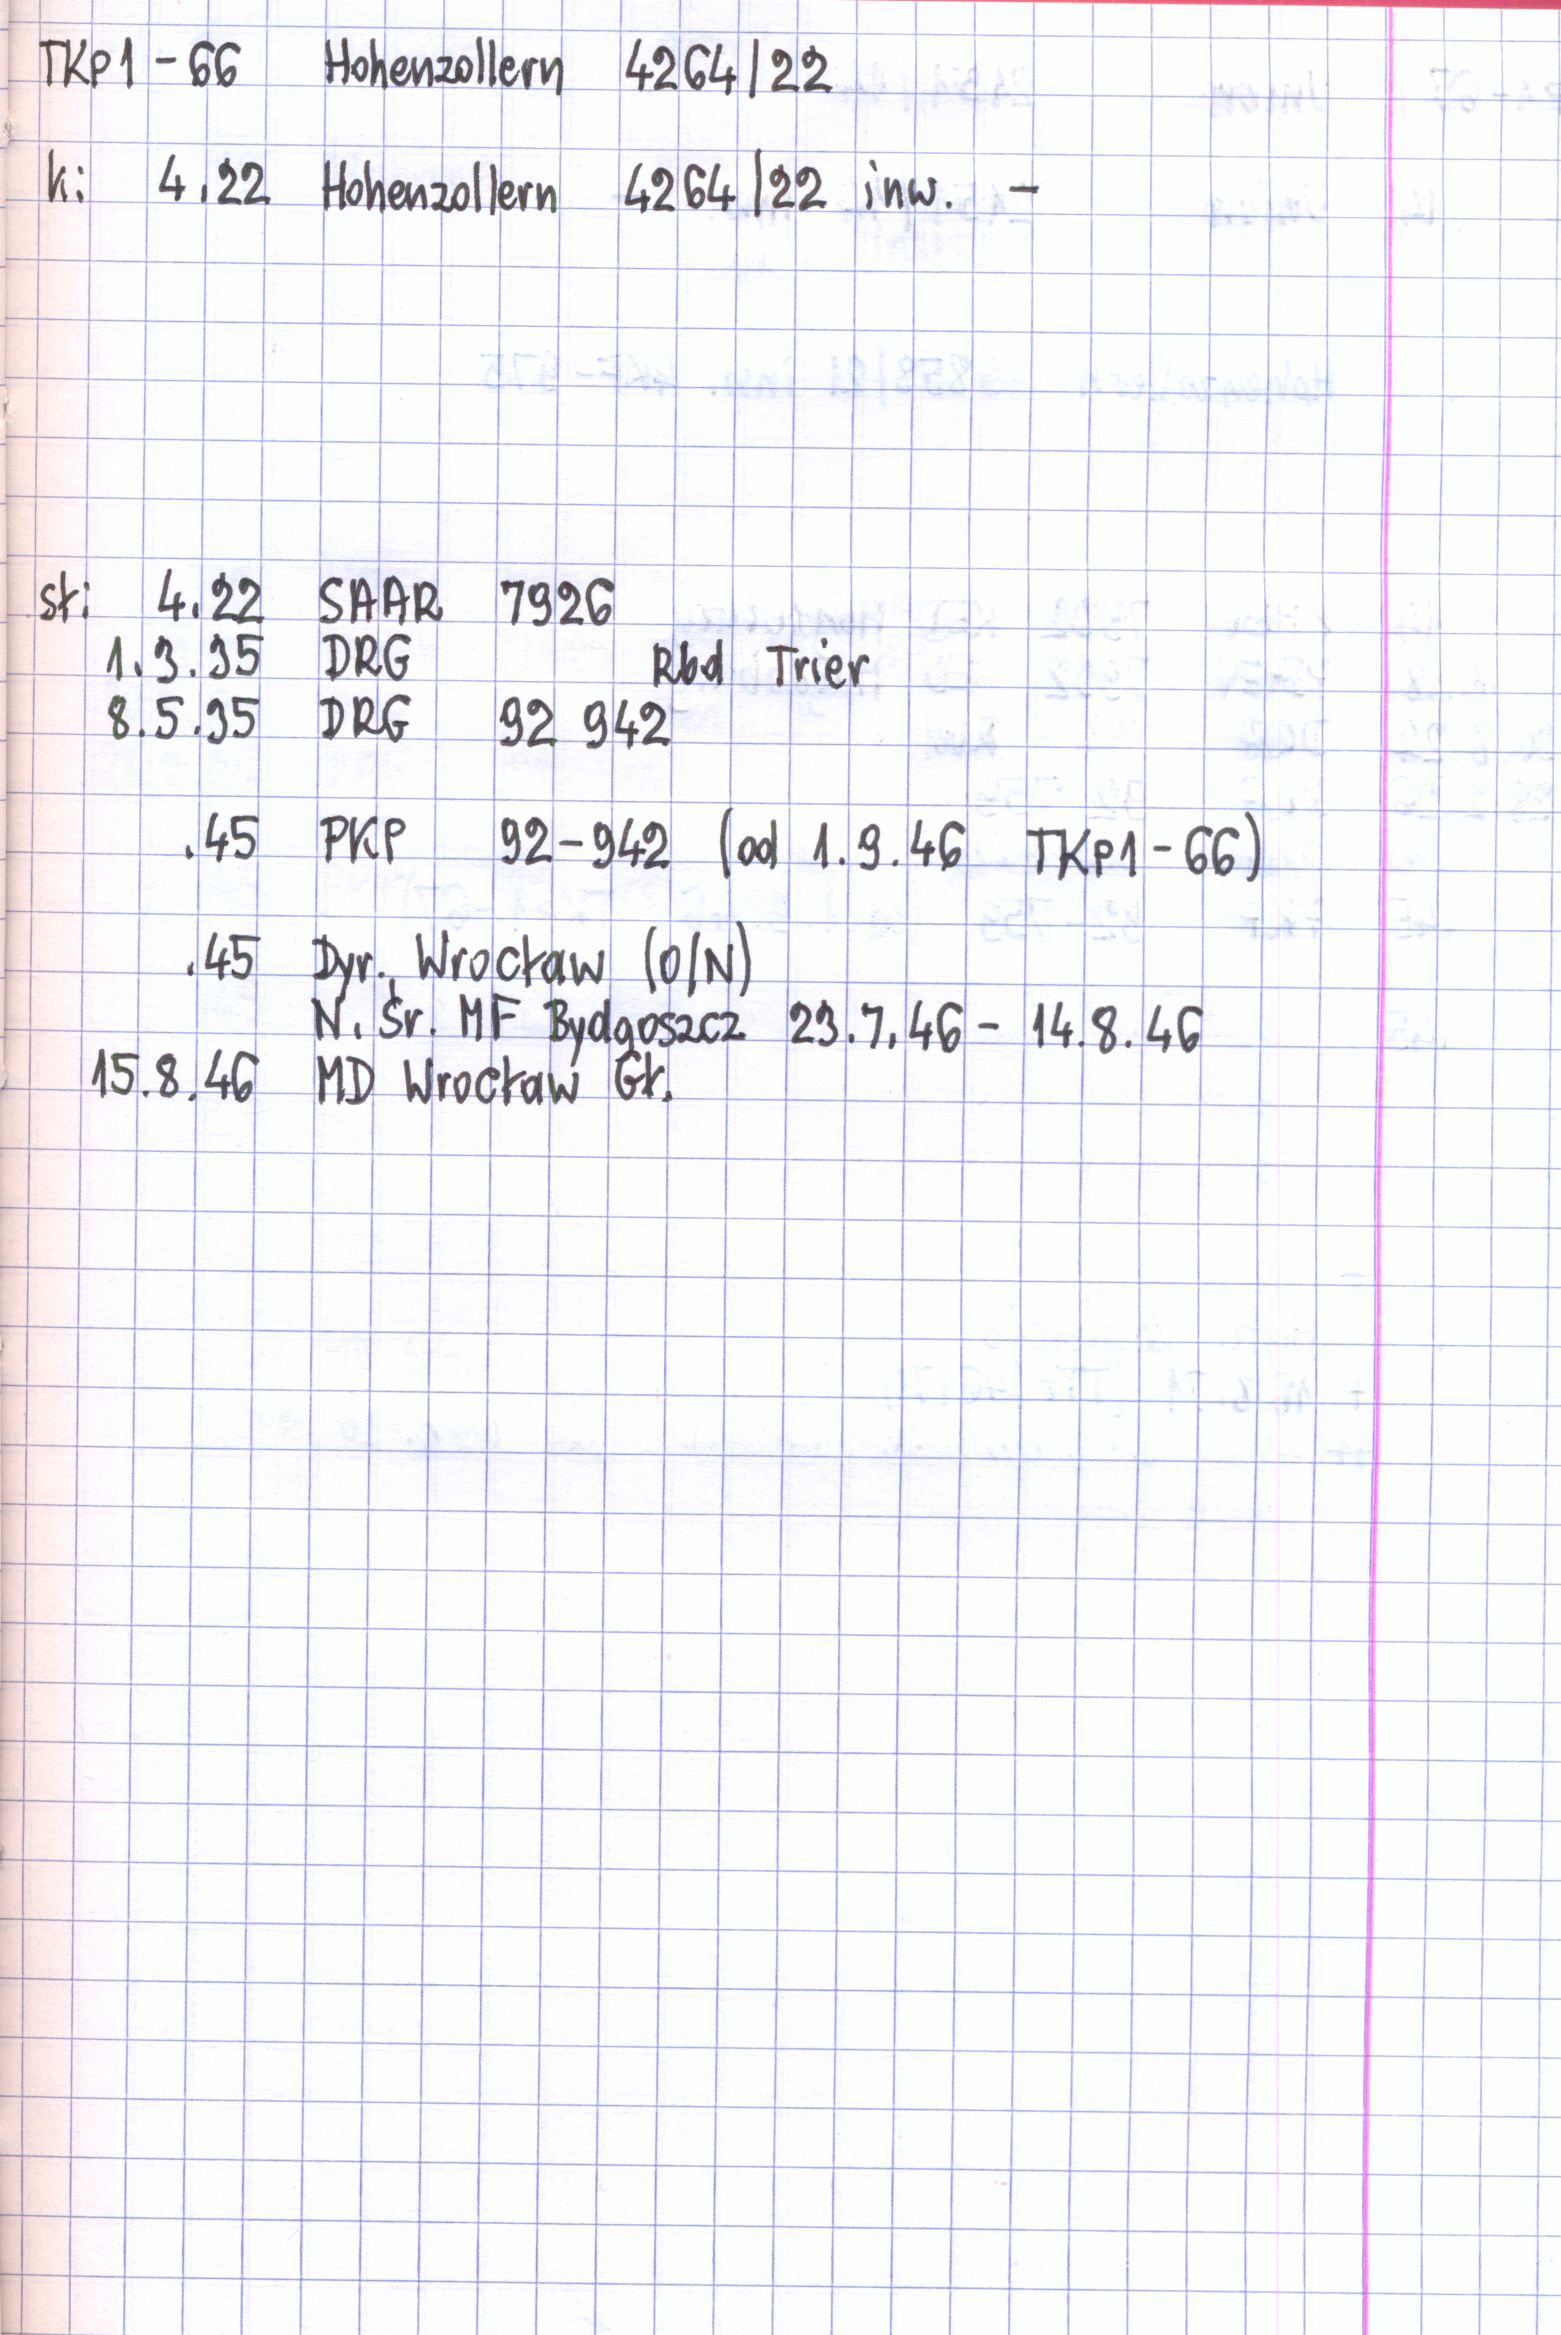 TKp1-66 Hohenzollern 4264/22
k: 4.22 Hohenzollern 4264/22 inw. -
st: 4.22 SAAR 7926
1.3.35 DRG Rbd Trier
8.5.35 DRG 92 942
.45 PKP 92-942 (od 1.9.46 TKp1-66)
.45 Dyr. Wrocław (O/N)
N. Śr. MF Bydgoszcz 23.7.46 - 14.8.46
15.8.46 MD Wrocław Gł.